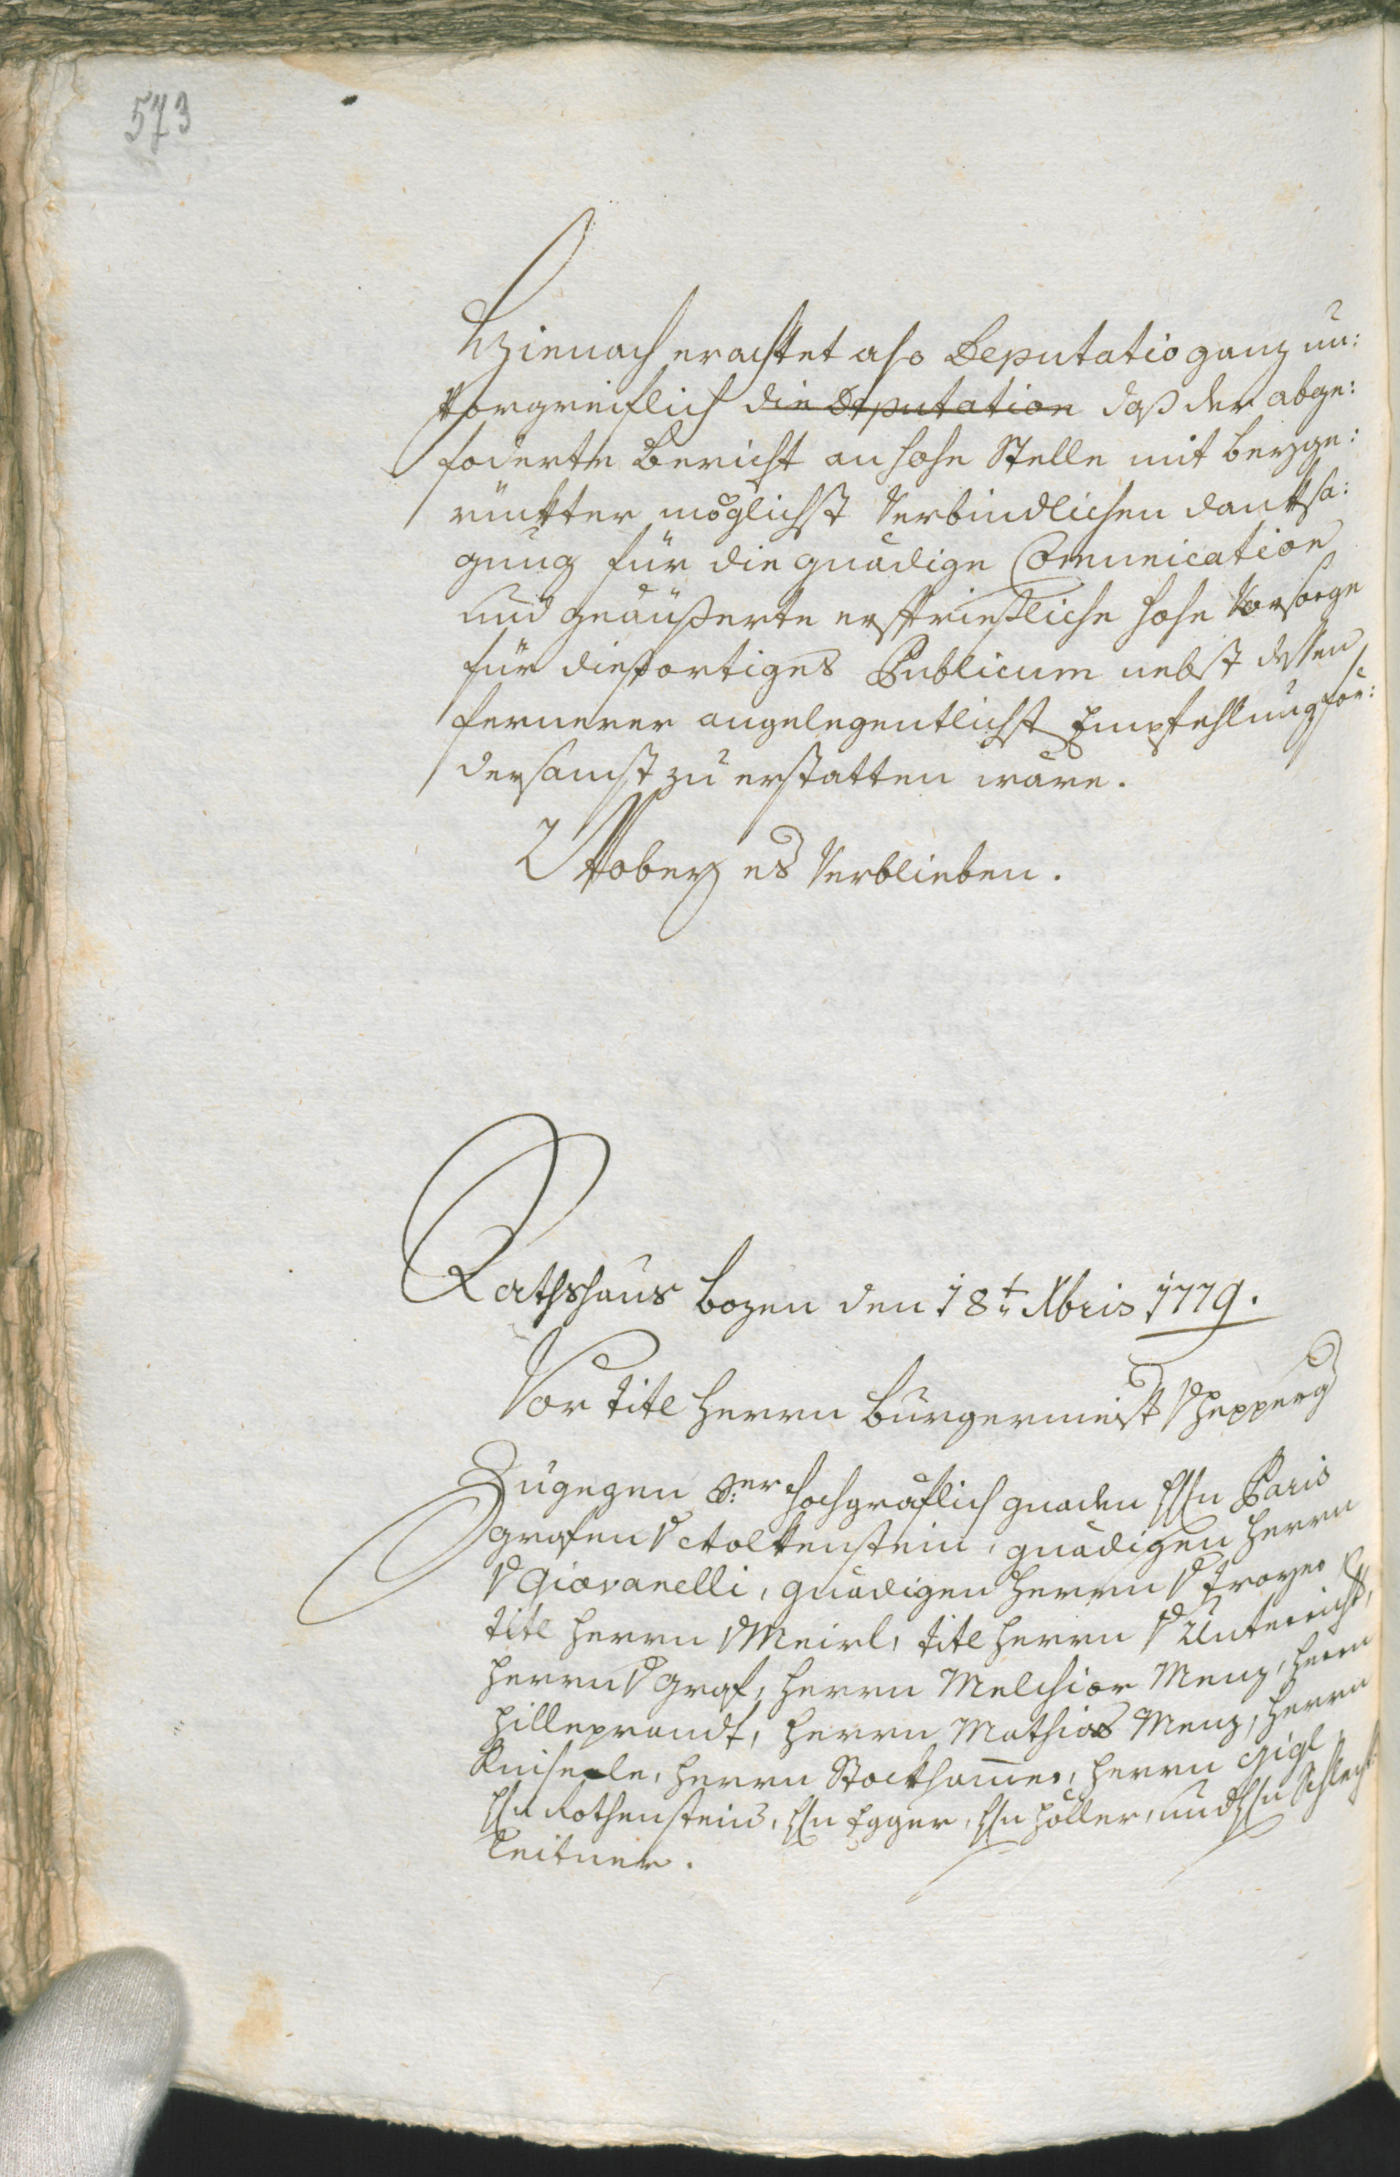 573
Hienach erachtet also Deputatio ganz un:
vorgreiflich die Deputation daß der abge:
foderte Bericht an hohe Stelle mit beyge:
rückter möglichst verbindlichen danksa:
gung für die gnädige Comunication
und geäußerte ersprießliche hohe Vorsorge
für diesortiges Publicum nebst dessen
fernerer angelegentlichst Empfehlung för:
dersamst zu erstatten wäre.
Wobey es verblieben.
Rathshaus Bozen den 18t Xbris 1779.
Vor tite Herrn Burgermeist v Hepperg
Zugegen Sr Hochgräflich gnaden Hn Paris
grafen v Wolkenstein, gnädigen Herrn
v Giovanelli, gnädigen Herrn v Troyer
tite Herrn v Meirl, tite Herrn v Unterricht,
Herrn v Graf, Herrn Melchior Menz, Herrn
Hilleprandt, Herrn Mathias Menz, Herrn
Kuisele, Herrn Stockhamer, Herrn Gigl
Hn Rothenstein, Hn Egger, Hn Höller, und Hn Schlecht
leitner.